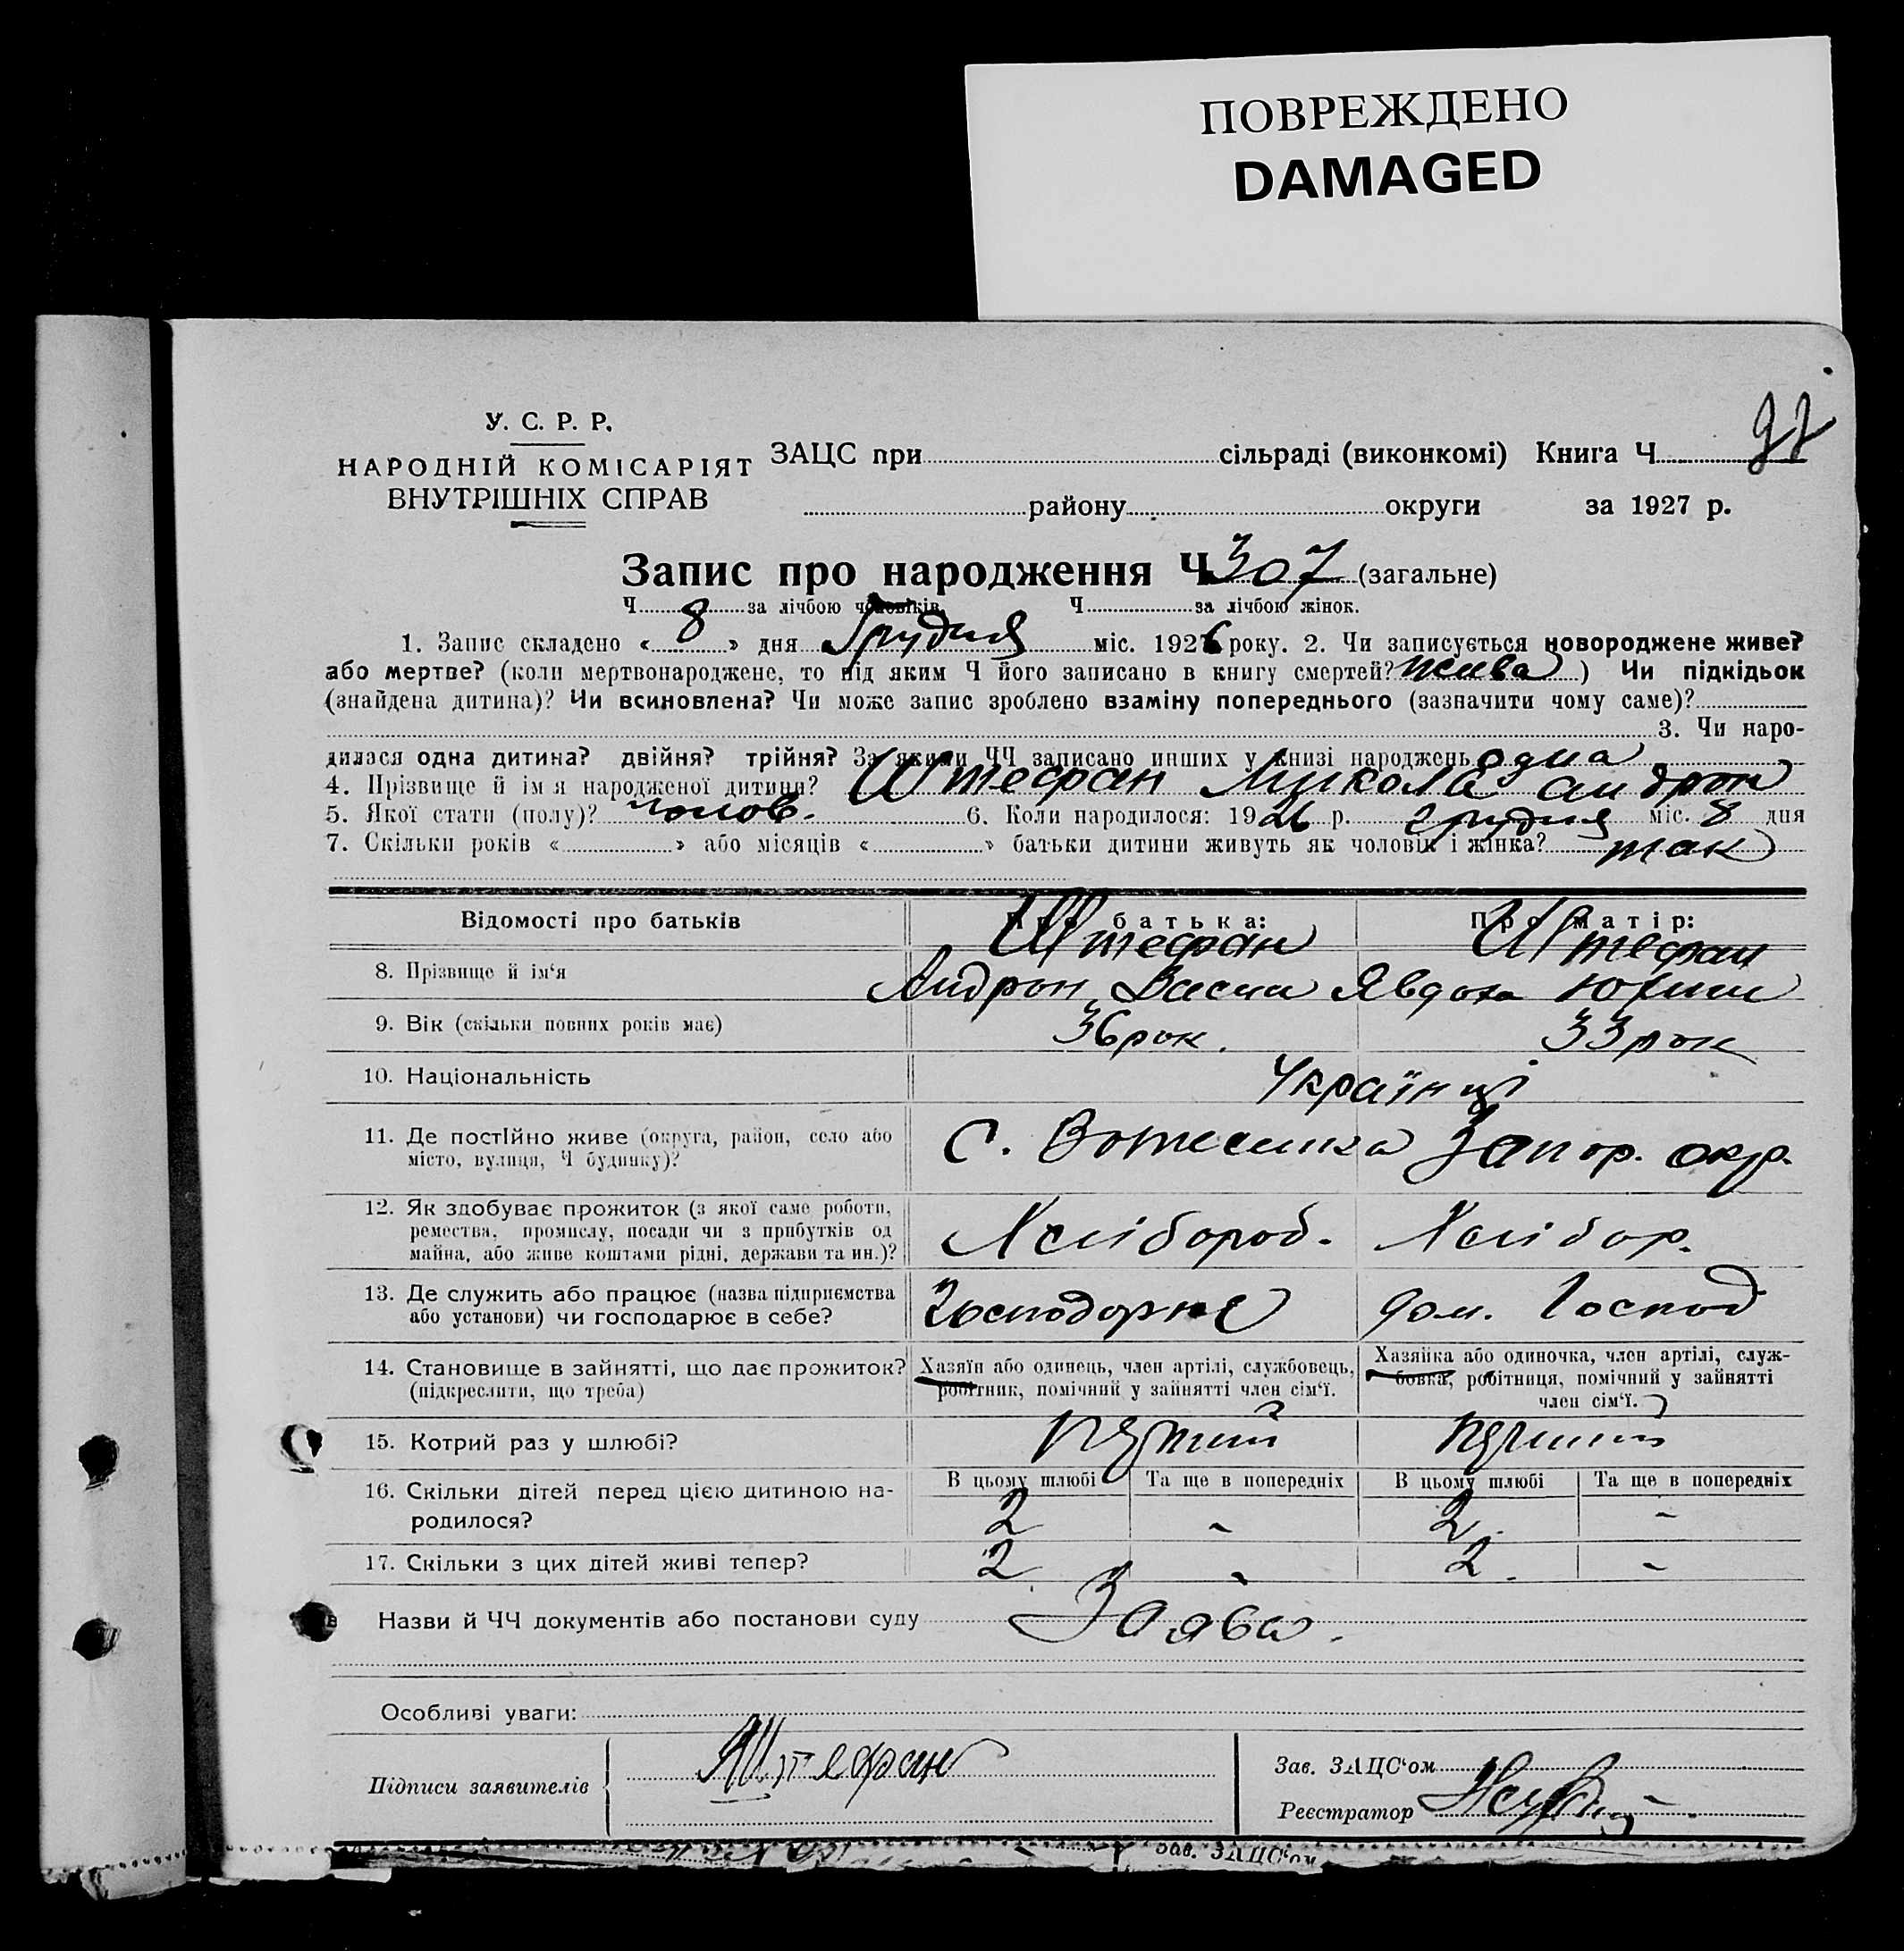 ПОВРЕЖДЕНО
DAMAGED
У. С. Р. Р.
НАРОДНІЙ КОМІСАРІЯТ
ВНУТРІШНІХ СПРАВ
ЗАЦС при сільраді (виконкомі) Книга Ч
району округи за 1927 р.
Запис про народження Ч 307 (загальне)
Ч 8 за лічбою чоловіків. Ч за лічбою жінок.
1. Запис складено « » дня Грудня міс. 1926 року. 2. Чи записується новороджене живе?
або мертве? (коли мертвонароджене, то під яким Ч його записано в книгу смертей? жива) Чи підкідьок
(знайдена дитина)? Чи всиновлена? Чи може запис зроблено взаміну попереднього (зазначити чому саме)?
3. Чи наро-
дилася одна дитина? двійня? трійня? За якими ЧЧ записано инших у книзі народжень одна
4. Прізвище й ім я народженої дитини? Штефан Микола Андрон
5. Якої стати (полу)? чолов. 6. Коли народилося: 1926 р. грудня міс. 8 дня
7. Скільки років « » або місяців « » батьки дитини живуть як чоловік і жінка? так
Відомості про батьків
Про батька:
Про матір:
8. Прізвище й ім‘я
Штефан
Андрон Васил
Штефан
Явдоха Юхим
9. Вік (скільки повних років має)
36 рок.
33 рок
10. Національність
Українці
11. Де постійно живе (округа, район, село або
місто, вулиця, Ч будинку)?
С. Запор. окр.
12. Як здобуває прожиток (з якої саме роботи,
ремества, промислу, посади чи з прибутків од
майна, або живе коштами рідні, держави та ин.)?
Хлібороб.
Хлібор.
13. Де служить або працює (назва підприємства
або установи) чи господарює в себе?
Господорює
дом. Господ
14. Становище в зайнятті, що дає прожиток?
(підкреслити, що треба)
Хазяїн або одинець, член артілі, службовець,
робітник, помічний у зайнятті член сім‘ї.
Хазяйка або одиночка, член артілі, служ-
бовка, робітниця, помічний у зайнятті
член сім‘ї.
15. Котрий раз у шлюбі?
перший
перший
16. Скільки дітей перед цією дитиною на-
родилося?
В цьому шлюбі
Та ще в попередніх
В цьому шлюбі
Та ще в попередніх
2 - 2. -
17. Скільки з цих дітей живі тепер?
2. - 2. -
Назви й ЧЧ документів або постанови суду Заява.
Особливі уваги:
Підписи заявителів
Штефан
Зав. ЗАЦС‘ом
Реєстратор
Зав. ЗАЦС‘ом